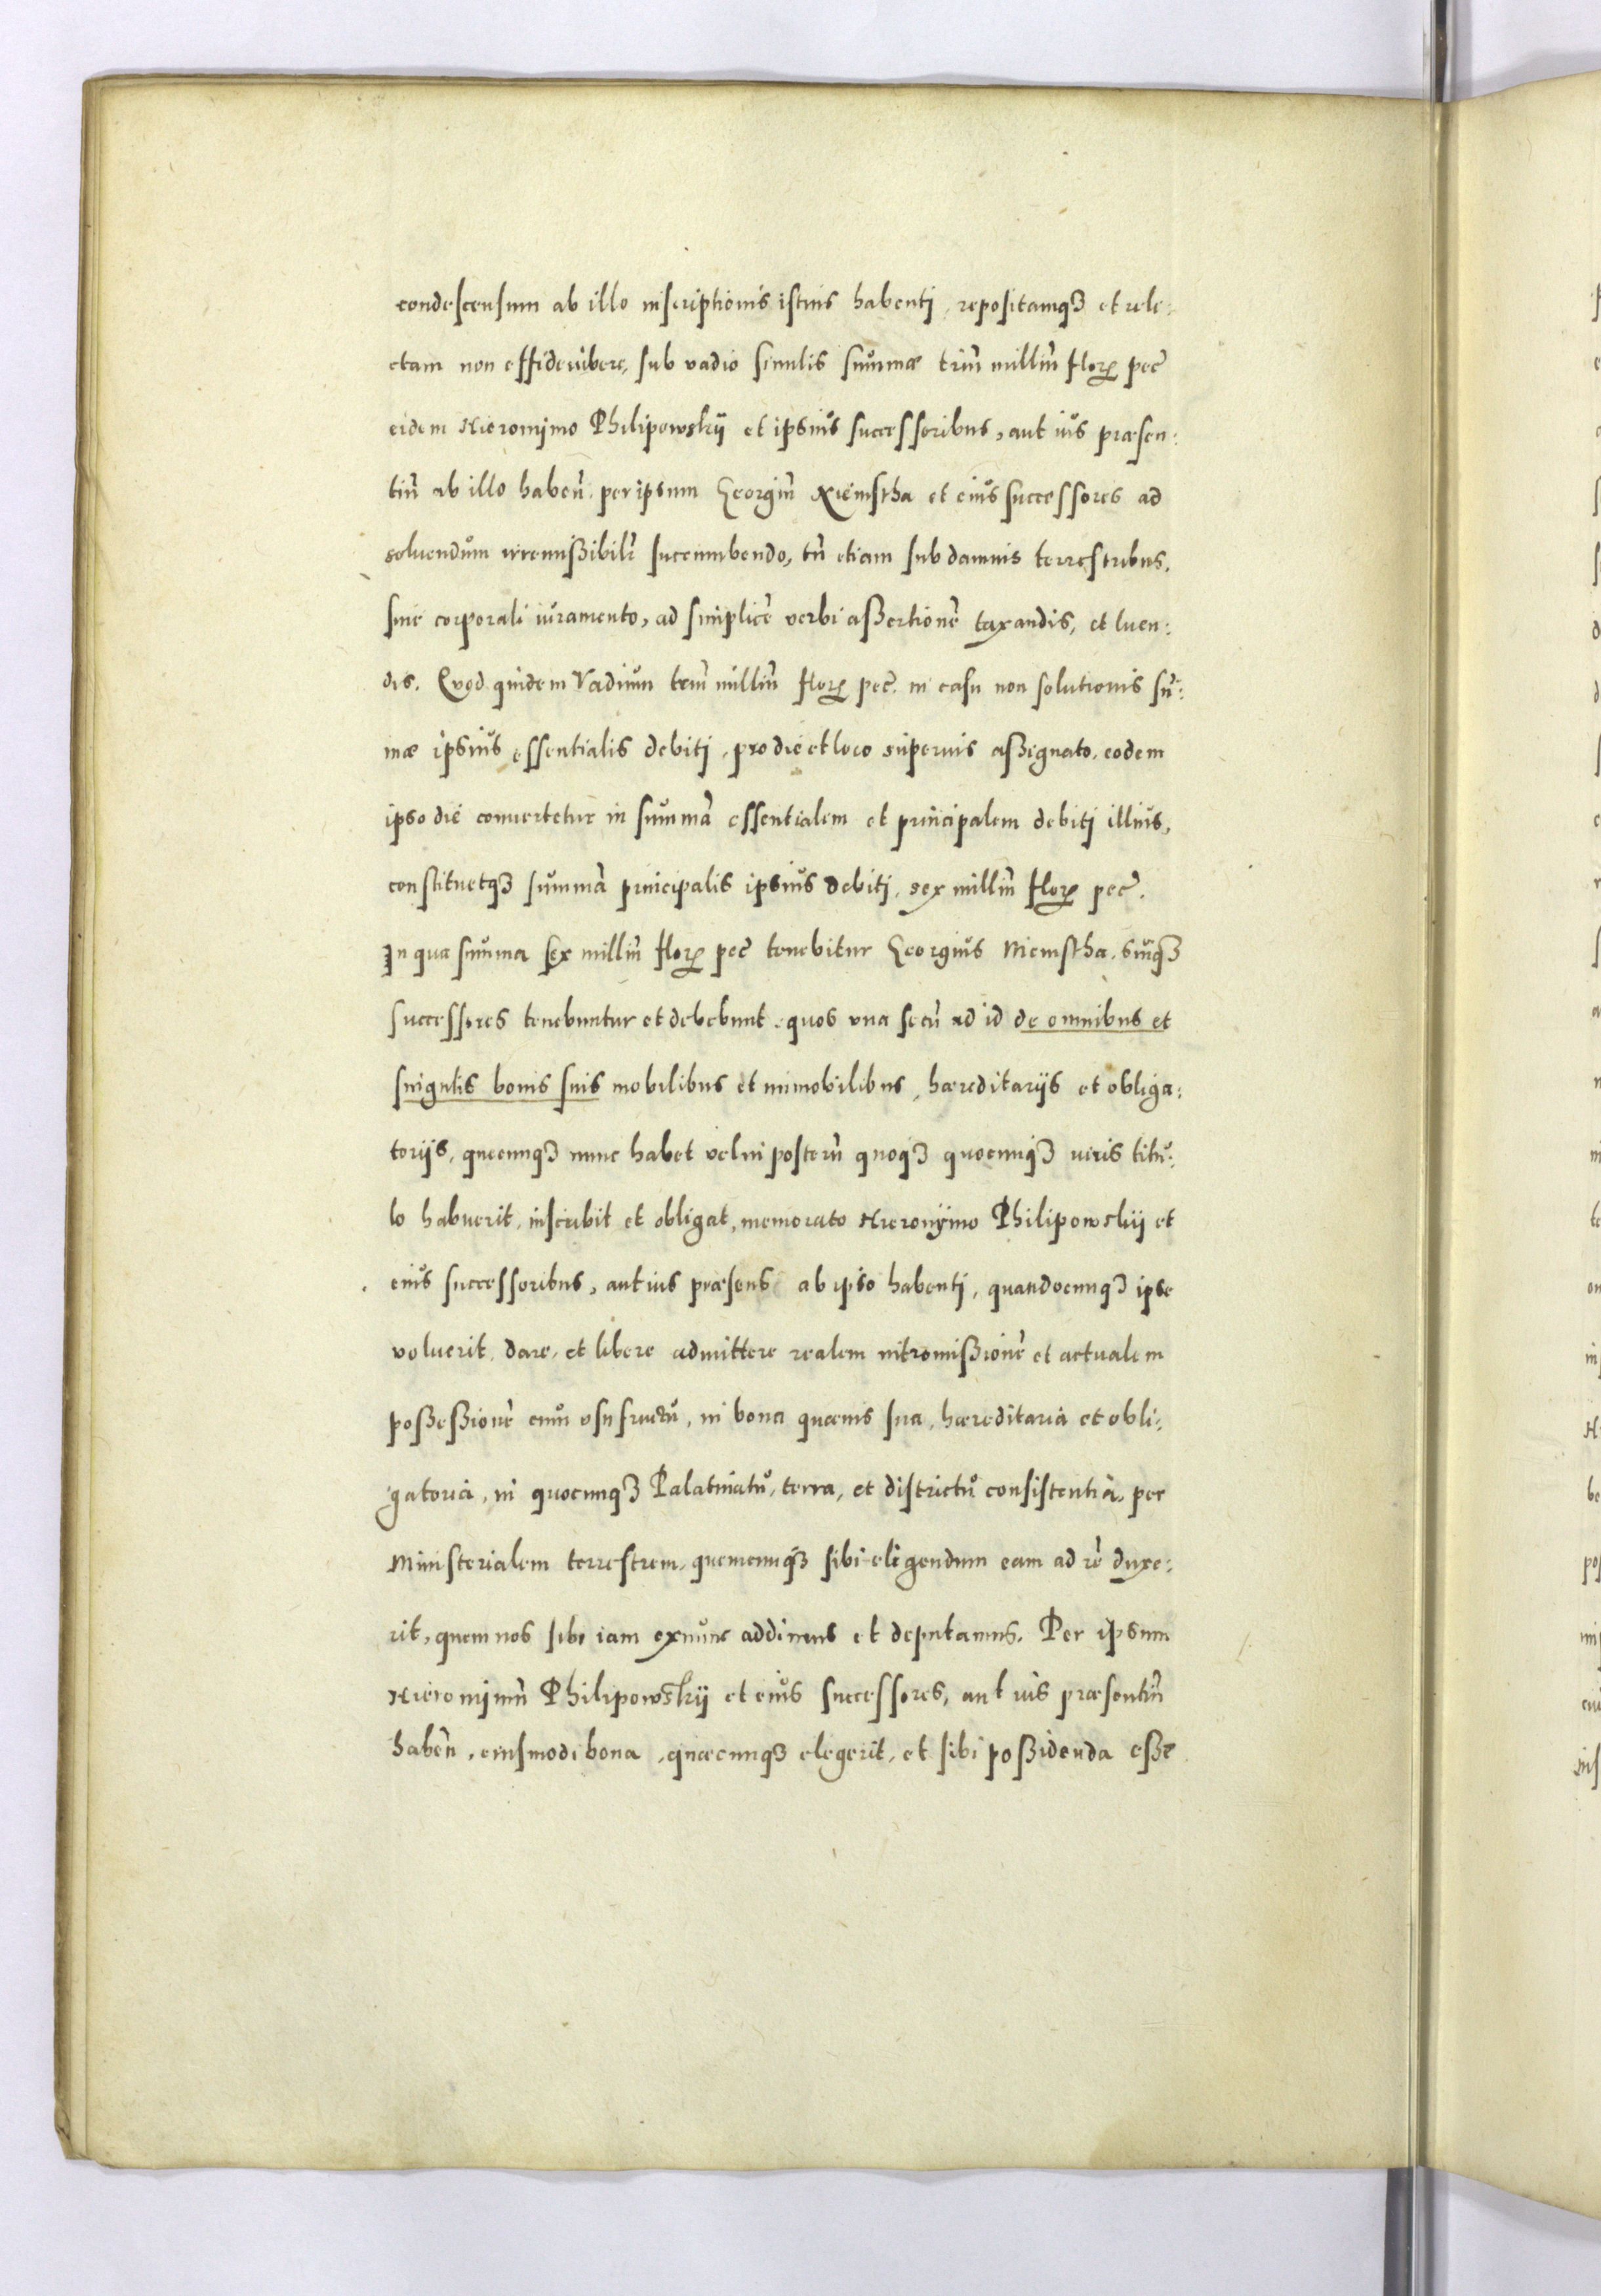 condescensum ab illo inscriptionis istius habenti, repositamqꝫ et rele:
ctam non effideiubere, sub vadio similis summæ triũ milliũ florꝫ pec̃
eidem Hieronymo Philipowskij et ipsius successoribus, aut ius præsen:
tiũ ab illo habeñ. per ipsum Georgiũ Niemstha et eius successores ad
soluendum irremißibilr̃ succumbendo, tñ etiam sub damnis terrestribus,
sine corporali iuramento, ad simplicẽ verbi aßertionẽ taxandis, et luen:
dis. Quod quidem Vadium trium milliũ florꝫ pec̃. in casu non solutionis sũ:
mæ ipsius essentialis debiti, pro die et loco superius aßignato, eodem
ipso die conuertetur in summã essentialem et principalem debiti illius,
constituetqꝫ summã principalis ipsius debiti, sex milliũ florꝫ pec̃.
In qua summa sex milliũ florꝫ pec̃ tenebitur Georgius Niemstha, suiqꝫ
successores tenebuntur et debebunt, quos vna secũ ad id de omnibus et
singulis bonis suis mobilibus et immobilibus, hæreditarijs et obliga:
torijs, quæcunqꝫ nunc habet vel in posterũ quoqꝫ quocunqꝫ iuris titu:
lo habuerit, inscribit et obligat, memorato Hieronymo Philipowskij et
eius successoribus, aut ius præsens ab ipso habenti, quandocunqꝫ ipse
voluerit, dare, et libere admittere realem intromißionẽ et actualem
poßeßionẽ cum vsufructu, in bona quæuis sua, hæreditaria et obli:
gatoria, in quocunqꝫ Palatinatu, terra, et districtu consistentia, per
Ministerialem terrestrem, quemcunqꝫ sibi eligendum eam ad rẽ duxe:
rit, quem nos sibi iam exnunc addimus et deputamus. Per ipsum
Hieronimũ Philipowskij et eius successores, aut ius præsentiũ
habeñ, eiusmodi bona, quæcunqꝫ elegerit, et sibi poßidenda eße